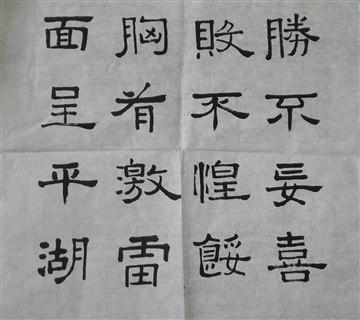 勝不妄喜
敗不惶餒
胸有激雷
面呈平湖